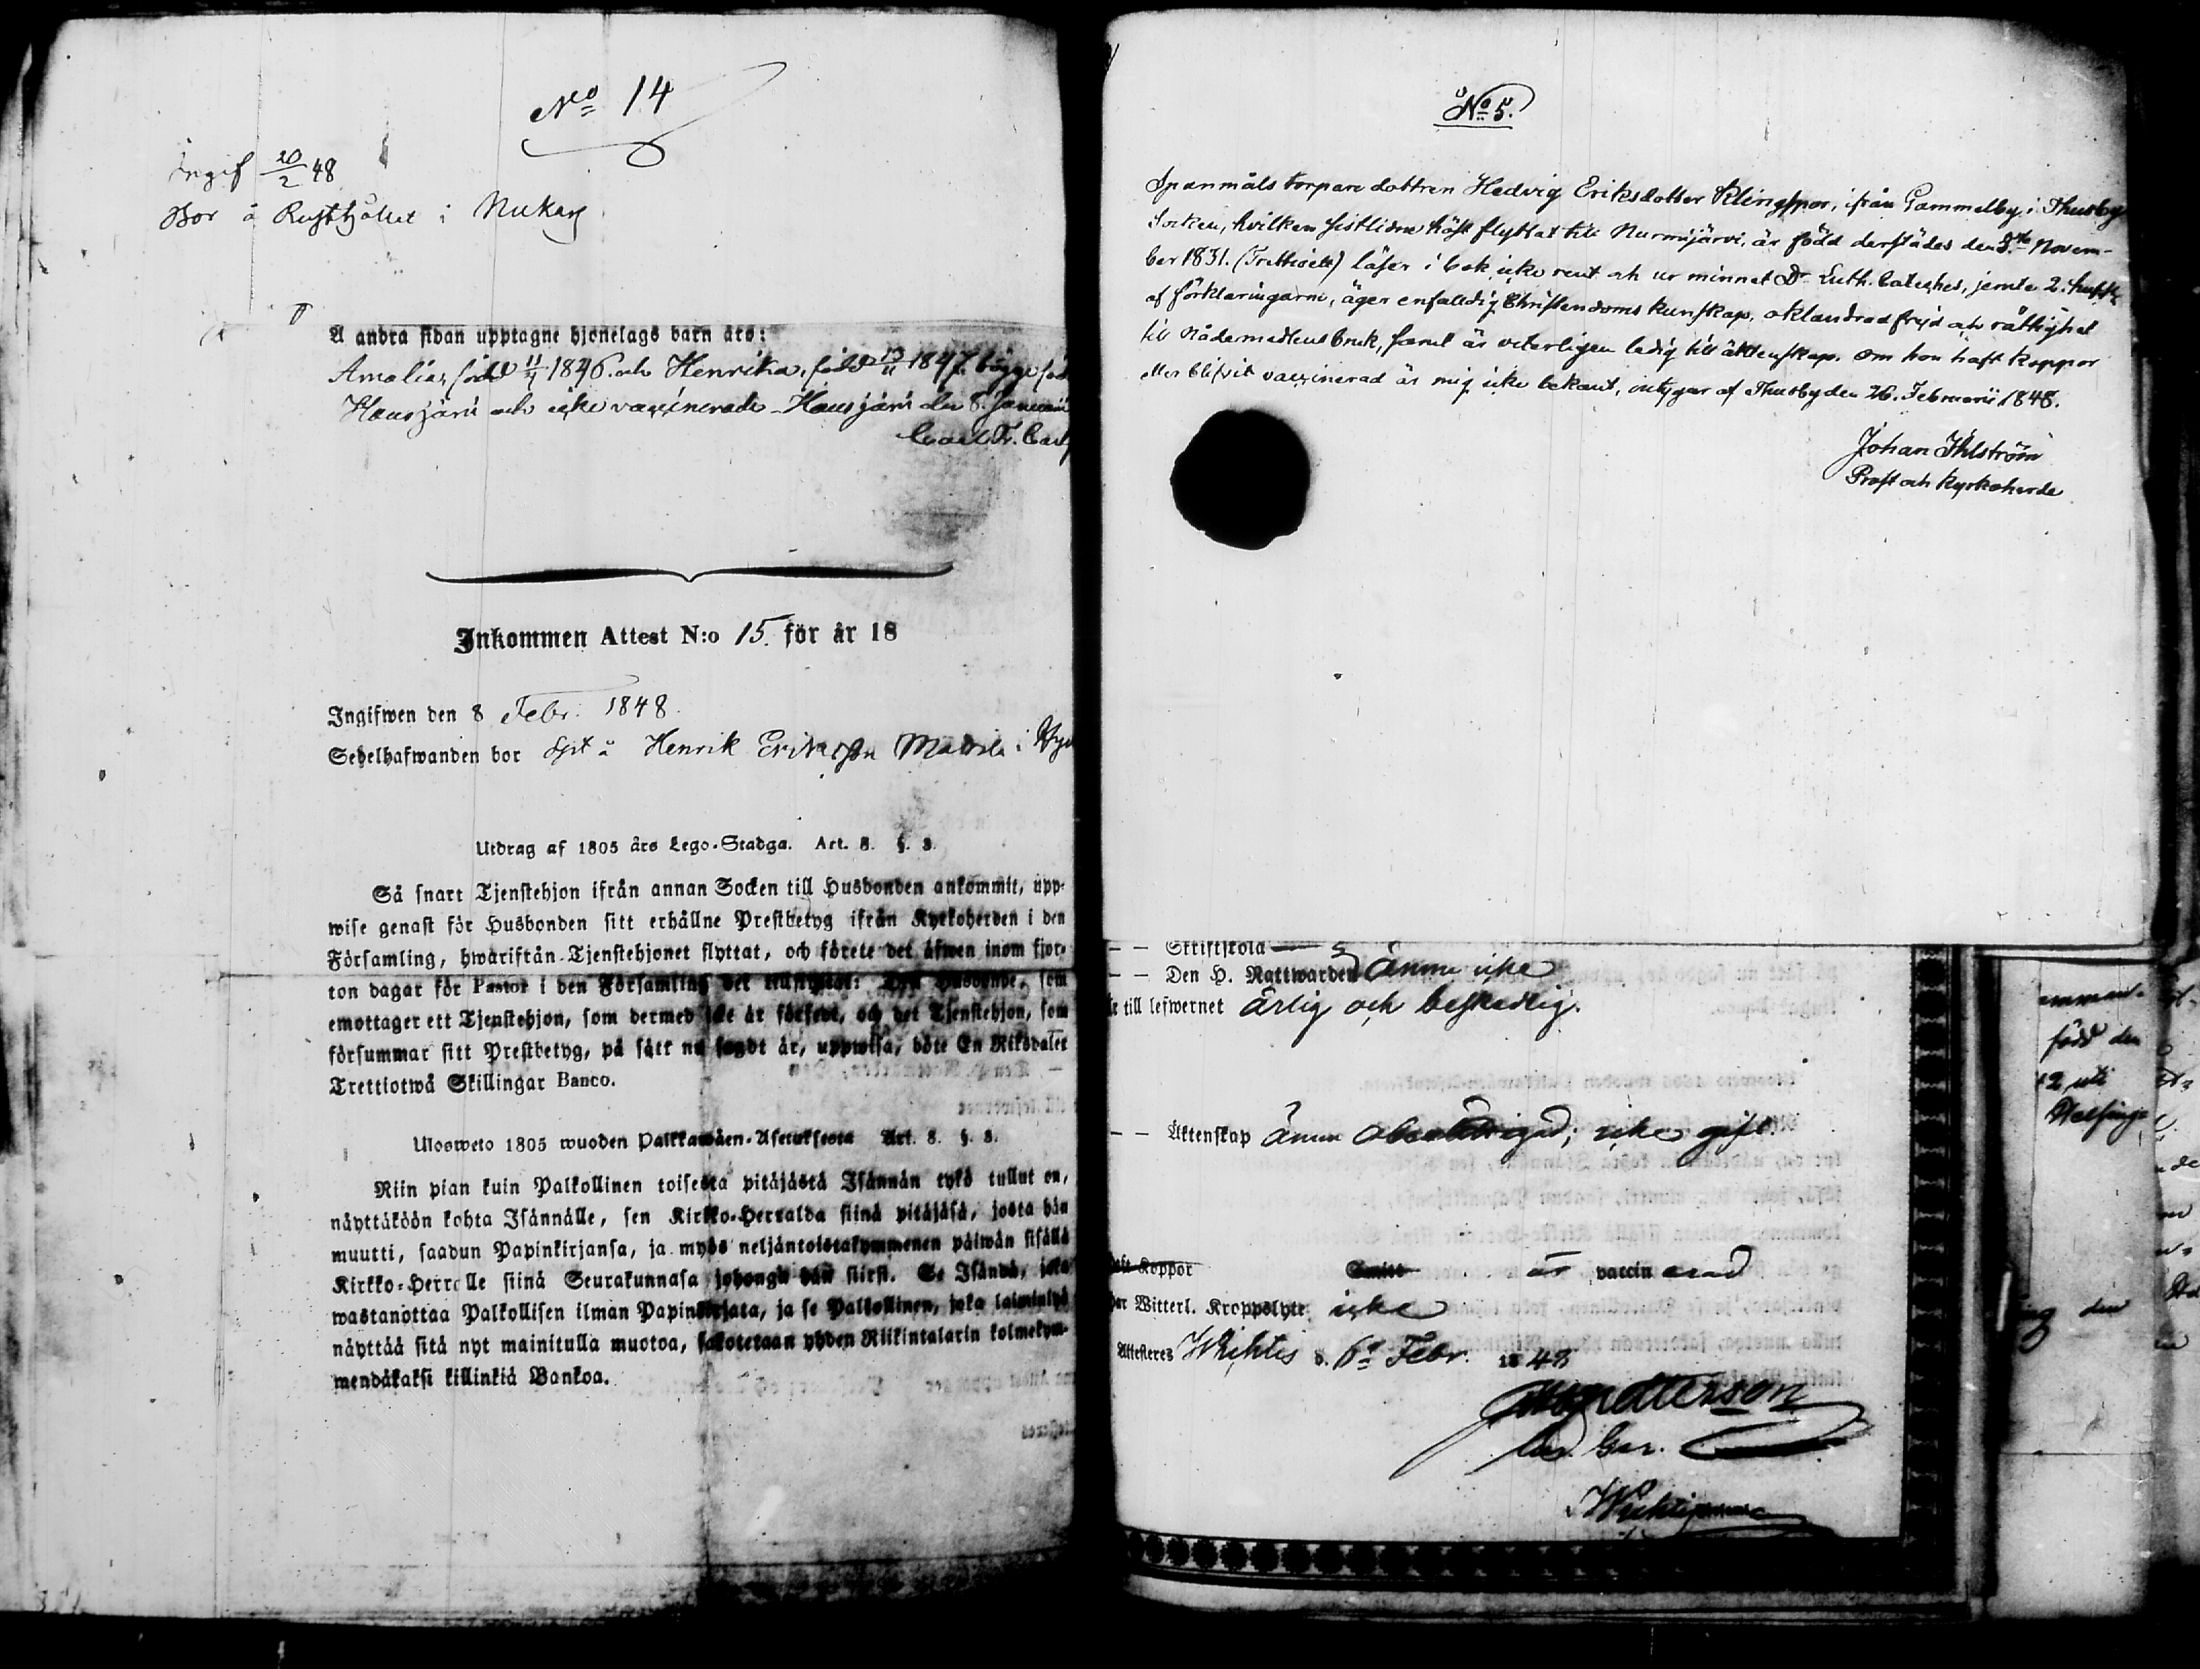 No 14
Ingif 20/2 48
Bor å Rusthållet i Nukari
Å andra sidan upptagne hjonelags barn äro:
Amalia, född 11/4 1846. och Henrika, född 13/11 1847. bägge föd
Hausjärvi och icke vaccinerade. Hausjärvi den 8. Januarii
Carl Fr.
Inkommen Attest N:o 15. för år 18
Ingifwen den 8 Febr. 1848.
Sedelhafwanden bor Henrik Eriksson Mattila i
Utdrag af 1805 års Lego-Stadga. Art. 8. §. 8.
Så snart Tjenstehjon ifrån annan Socken till Husbonden ankommit, upp-
wise genast för Husbonden sitt erhållne Prestbetyg ifrån Kyrkoherden i den
Församling, hwarifrån Tjenstehjonet flyttat, och förete det äfwen inom fjor-
ton dagar för Pastor i den Församling det tillflyttat: Den Husbonde, som
emottager ett Tjenstehjon, som dermed icke är försedt, och det Tjenstehjon, som
försummar sitt Prestbetyg, på sätt nu sagdt är, uppwisa, böte En Riksdaler
Trettiotwå Skillingar Banco.
Ulosweto 1805 wuoden Palkkawäen-Asetuksesta Art. 8. §. 8.
Niin pian kuin Palkollinen toisesta pitäjästä Isännän tykö tullut on,
näyttäköön kohta Isännälle, sen Kirkko-Herralda siinä pitäjäsä, josta hän
muutti, saadun Papinkirjansa, ja myös neljäntoistakymmenen päiwän sisällä
Kirkko-Herralle siinä Seurakunnasa johonga hän siirsi. Se Isändä, joka
wastanottaa Palkollisen ilman Papinkirjata, ja se Palkollinen, joka laiminlyö
näyttää sitä nyt mainitulla muotoa, sakotetaan yhden Riikintalarin kolmekym-
mendäkaksi killinkiä Bankoa.
No 5.
Spanmåls torpare dottren Hedvig Eriksdotter Klingspor, ifrån Gammelby i Thusby
Socken, hvilken sistlidne höst flyttat till Nurmijärvi, är född derstädes den 3.de Novem-
ber 1831. (Trettioett) läser i bok icke rent och ur minnet Dr Luth. Cateches, jemte 2. hufst.
af förklaringarne, äger enfaldig Christendoms kunskap, oklandrad frejd och rättighet
till Nådemedlens bruk, samt är veterligen ledig till äktenskap. Om hon haft koppor
eller blifvit vaccinerad är mig icke bekant, intygar af Thusby den 26. Februarii 1848.
Johan Ihlström
Prost och Kyrkoherde
— — Skriftskola
— — Den H. Nattwarden ännu icke
är till lefwernet ärlig och beskedlig.
— — Äktenskap ännu obesvärad; icke gift.
haft Koppor Smitt är vaccinerad
har Witterl. Kroppslyte icke
Attesteres Whichtis d. 6e Febr. 1848
Wichtis
född den
12 uti
Helsing-
den